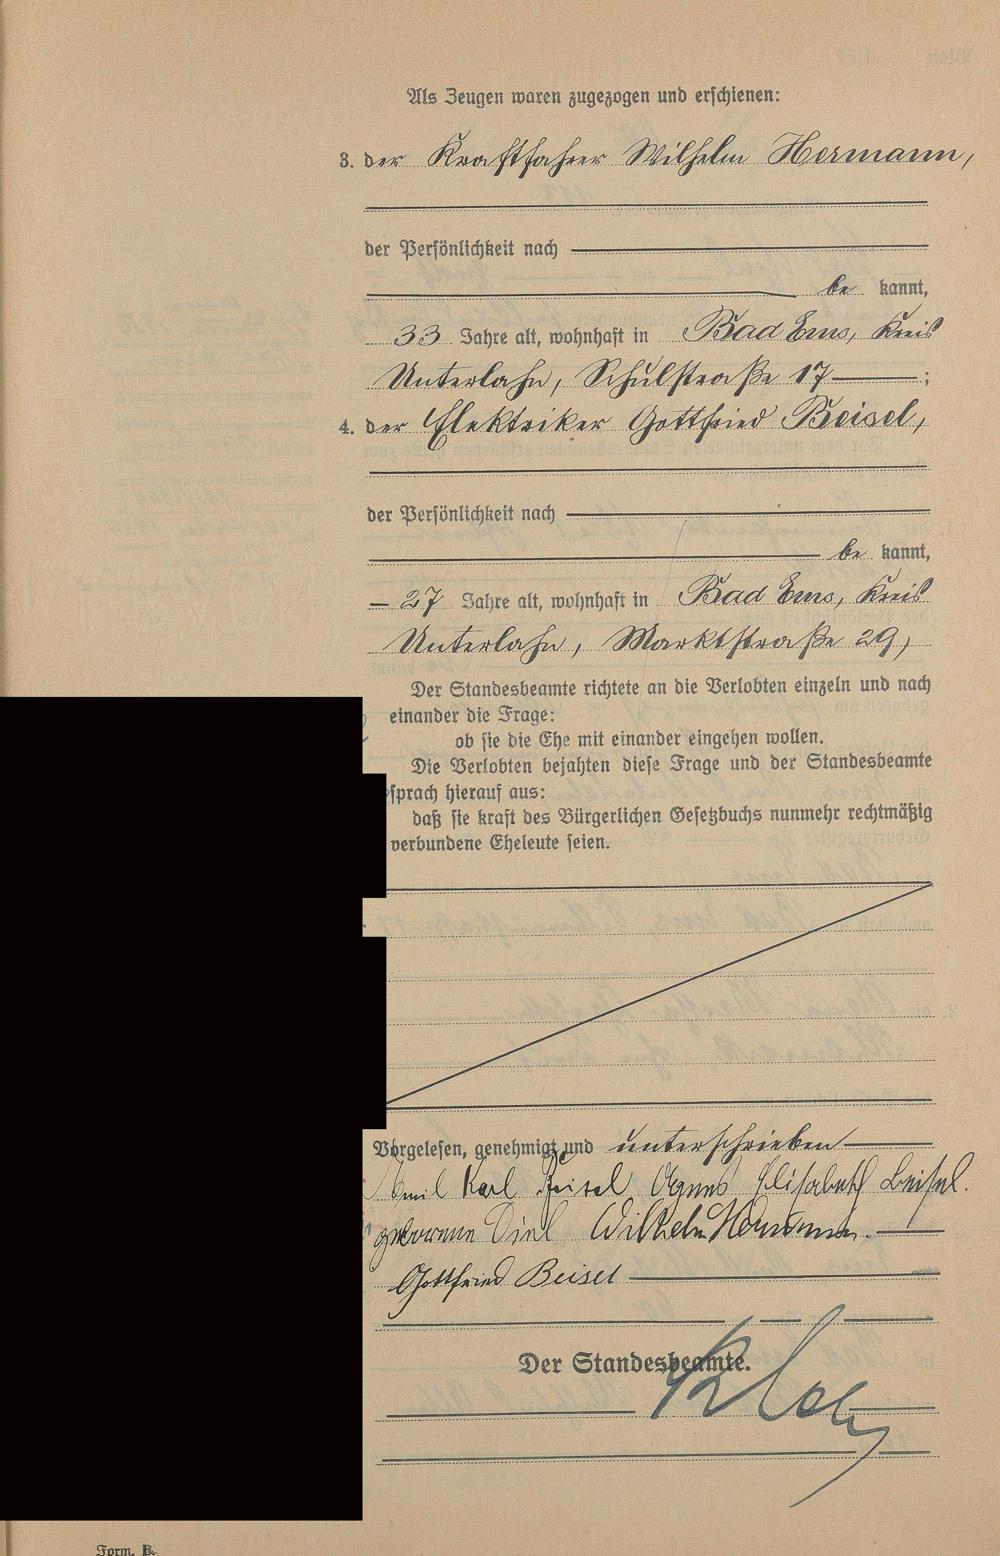 Als Zeugen waren zugezogen und erschienen:
3. der Kraftfahrer Wilhelm Hermann,
der Persönlichkeit nach
be kannt,
33 Jahre alt, wohnhaft in Bad Ems, Kreis
Unterlahn, Schulstraße 17 ;
4. der Elektriker Gottfried Beisel,
der Persönlichkeit nach
be kannt,
27 Jahre alt, wohnhaft in Bad Ems, Kreis
Unterlahn, Marktstraße 29,
Der Standesbeamte richtete an die Verlobten einzeln und nach
einander die Frage:
ob sie die Ehe mit einander eingehen wollen.
Die Verlobten bejahten diese Frage und der Standesbeamte
sprach hierauf aus:
daß sie kraft des Bürgerlichen Gesetzbuchs nunmehr rechtmäßig
verbundene Eheleute seien.
Vorgelesen, genehmigt und unterschrieben
Emil Karl Beisel Agnes Elisabeth Beisel.
geborene Diel Wilhelm Hermann.
Gottfried Beisel
Der Standesbeamte.
Form. B.